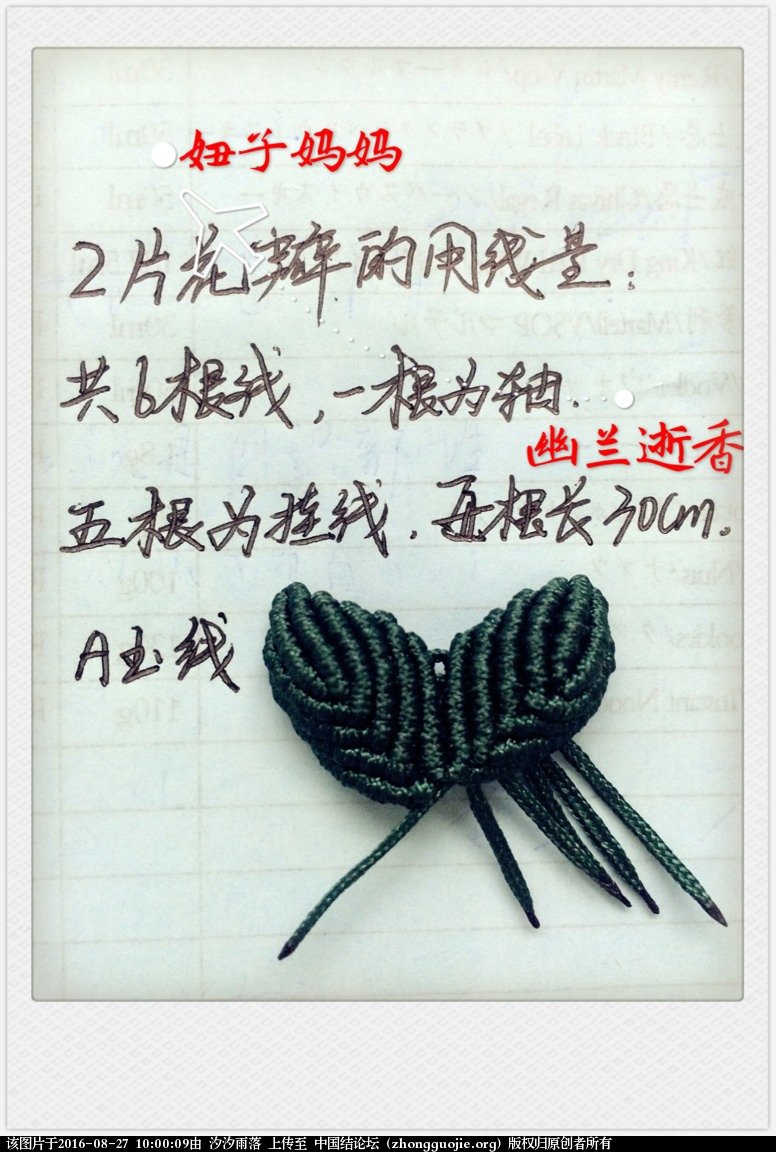 妞子妈妈
2片花瓣的用线量:
共6根线,一根为轴.
幽兰逝香
五根为挂线.每根长30cm.
A玉线
该图片于2016-08-27 10:00:09由 汐汐雨落 上传至 中国结论坛 (zhongguojie.org) 版权归原创者所有